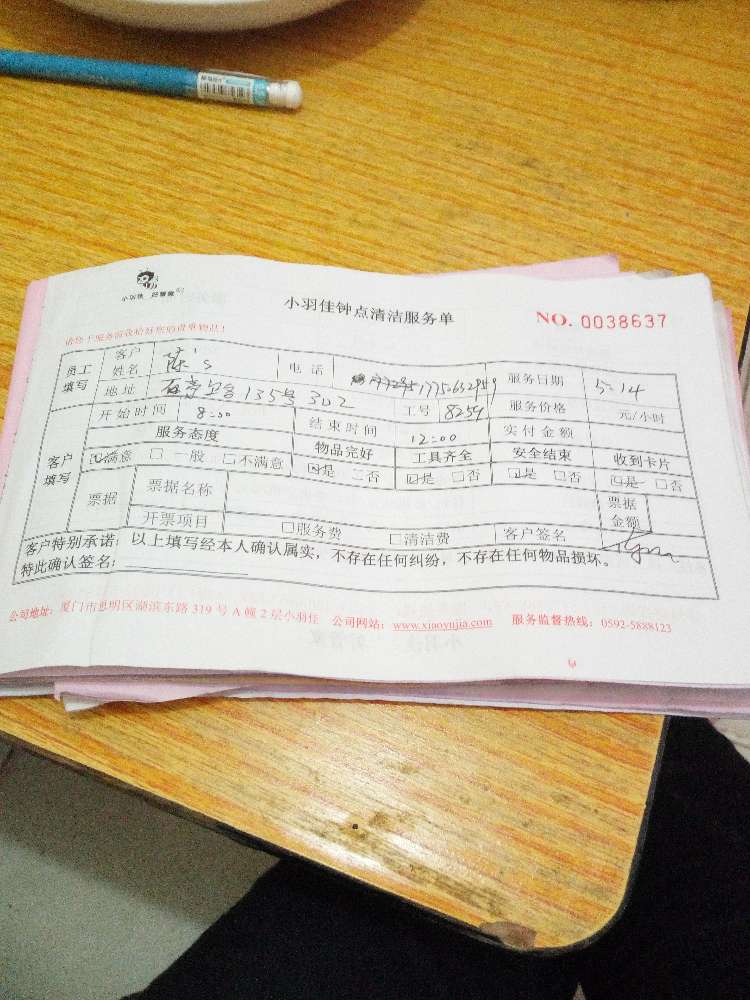 小羽佳
小羽佳钟点清洁服务单
NO. 0038637
员工填写 客户姓名 陈's 电话 服务日期 5.14
地址 135号302 工号 8254 服务价格 元/小时
客户填写 开始时间 8:00 结束时间 12:00 实付金额
服务态度 物品完好 工具齐全 安全结束 收到卡片
☑满意 □一般 □不满意 ☑是 □否 ☑是 □否 ☑是 □否 ☑是 □否
票据 票据名称 票据金额
开票项目 □服务费 □清洁费 客户签名
客户特别承诺：以上填写经本人确认属实，不存在任何纠纷，不存在任何物品损坏。
特此确认签名：
公司地址：厦门市思明区湖滨东路 319 号 A 幢 2 层小羽佳 公司网站：www.xiaoyujia.com 服务监督热线：0592-5888123